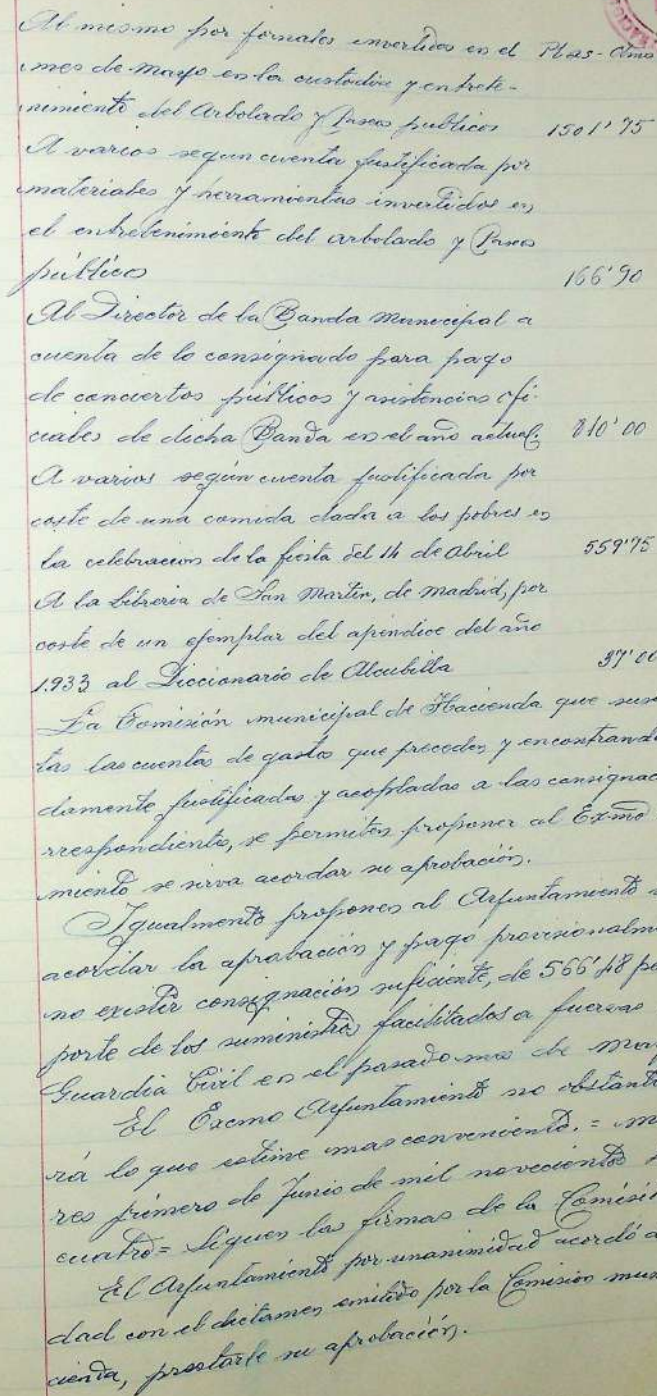 Al mismo por jornales invertidos en el Ptas-Ctmos
mes de mayo en la custodia y entrete-
nimiento del Arbolado y Paseos publicos 1501'75
A varios segun cuenta justificada por
materiales y herramientas invertidos en
el entretenimiento del arbolado y Paseos
públicos 166'90
Al Director de la Banda Municipal a
cuenta de lo consignado para pago
de conciertos públicos y asistencias ofi-
ciales de dicha Banda en el año actual. 810'00
A varios según cuenta justificada por
coste de una comida dada a los pobres en
la celebracion de la fiesta del 14 de Abril 559'75
A la Libreria de San Martin, de Madrid, por
coste de un ejemplar del apendice del año
1.933 al Diccionario de Alcubilla 37'00
La Comisión municipal de Hacienda que sus
tas las cuentas de gastos que preceden y encontrand
damente justificadas y acopladas a las consignac
rrespondientes, se permiten proponer al Exmo
miento se sirva acordar su aprobación.
Igualmente proponen al Ayuntamiento s
acordar la aprobación y pago provisionalm
no existir consignación suficiente, de 566'48 p
porte de los suministros facilitados a fuerzas
Guardia Civil en el pasado mes de may
El Excmo Ayuntamiento no obstant
rá lo que estime mas conveniente. = M
res primero de Junio de mil novecientos
cuatro = Siguen las firmas de la Comisi
El Ayuntamiento por unanimidad acordó
dad con el dictamen emitido por la Comision mun
cienda, prestarle su aprobación.